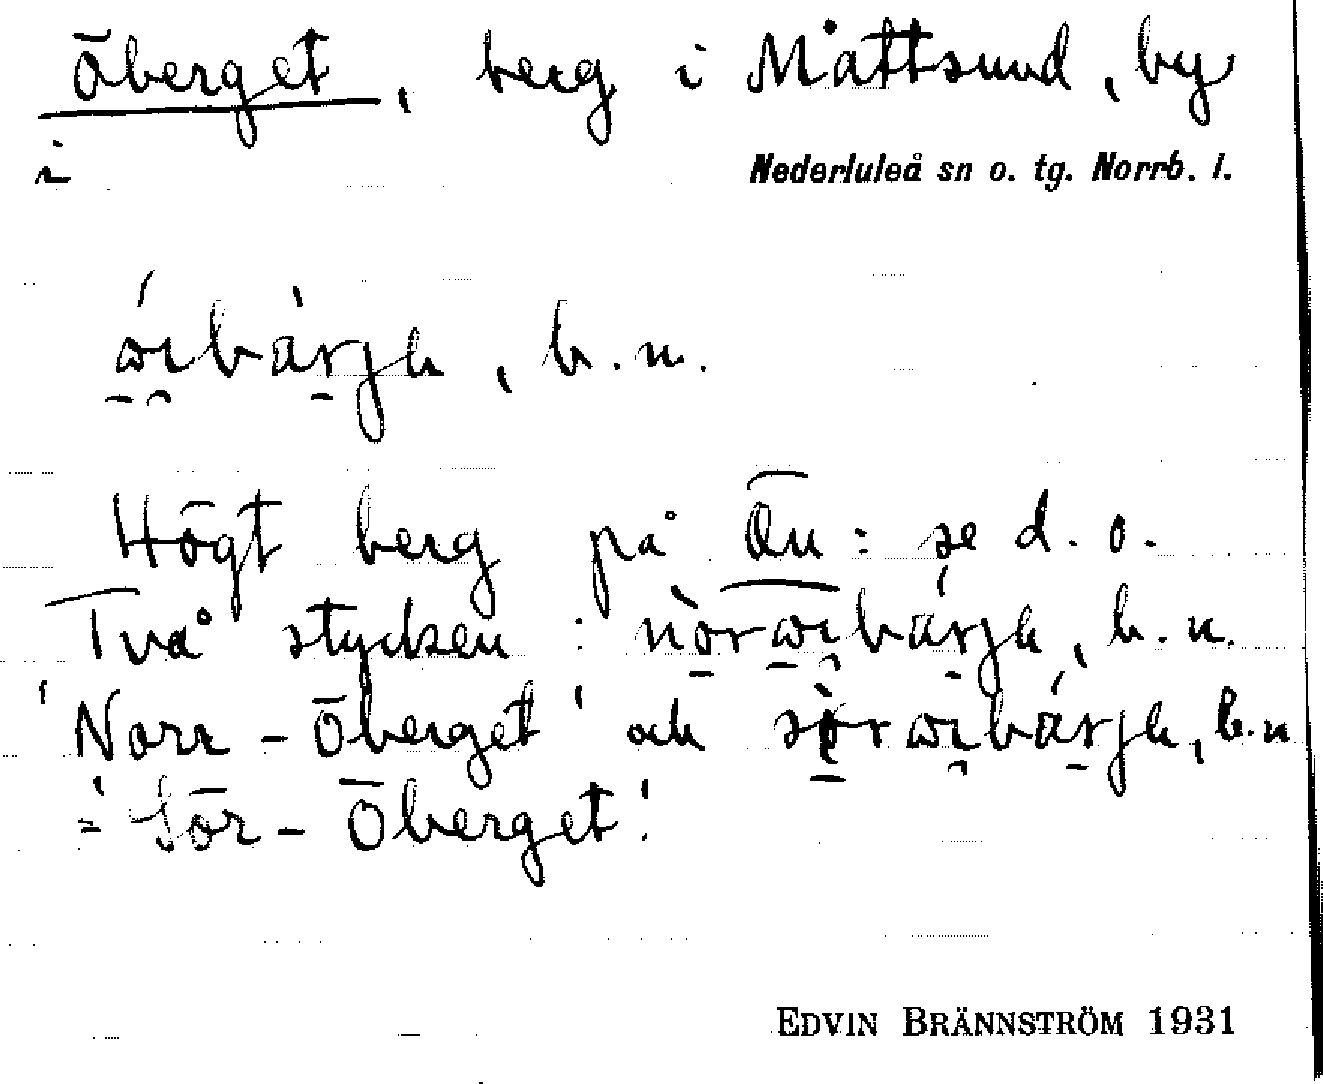 Öberget, berg i Måttsund, by
i Nederluleå sn o. tg. Norrb. l.
b. n.
Högt berg på Ön: se d. o.
Två stycken: b. n.
'Norr-Öberget' och b. n
= 'Sör-Öberget'.
EDVIN BRÄNNSTRÖM 1931